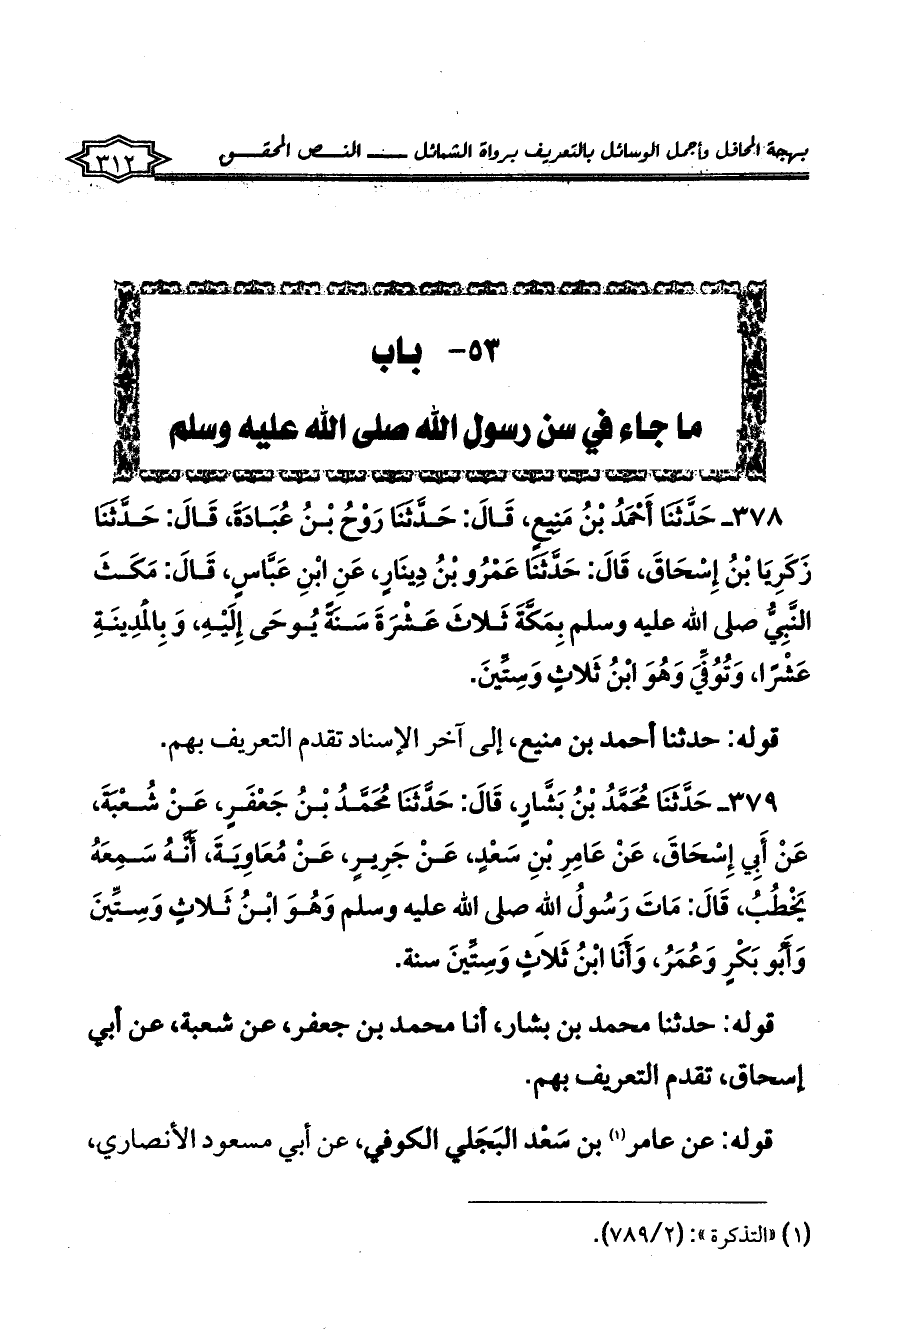 بهجة المحافل وأجمل الوسائل بالتعريف برواة الشمائل ــــ النــص المحقــق
٣١٢
٥٣- باب
ما جاء في سن رسول الله صلى الله عليه وسلم
٣٧٨ـ حَدَّثَنَا أَحْمَدُ بْنُ مَنِيعٍ، قَالَ: حَدَّثَنَا رَوْحُ بْنُ عُبَادَةَ، قَالَ: حَدَّثَنَا
زَكَرِيَا بْنُ إِسْحَاقَ، قَالَ: حَدَّثَنَا عَمْرُو بْنُ دِينَارٍ، عَنِ ابْنِ عَبَّاسٍ، قَالَ: مَكَثَ
النَّبِيُّ صلى الله عليه وسلم بِمَكَّةَ ثَلاثَ عَشْرَةَ سَنَةً يُوحَى إِلَيْهِ، وَبِالْمَدِينَةِ
عَشْرًا، وَتُوُفِّيَ وَهُوَ ابْنُ ثَلاثٍ وَسِتِّينَ.
قوله: حدثنا أحمد بن منيع، إلى آخر الإسناد تقدم التعريف بهم.
٣٧٩ـ حَدَّثَنَا مُحَمَّدُ بْنُ بَشَّارٍ، قَالَ: حَدَّثَنَا مُحَمَّدُ بْنُ جَعْفَرٍ، عَنْ شُعْبَةَ،
عَنْ أَبِي إِسْحَاقَ، عَنْ عَامِرِ بْنِ سَعْدٍ، عَنْ جَرِيرٍ، عَنْ مُعَاوِيَةَ، أَنَّهُ سَمِعَهُ
يَخْطُبُ، قَالَ: مَاتَ رَسُولُ الله صلى الله عليه وسلم وَهُوَ ابْنُ ثَلاثٍ وَسِتِّينَ
وَأَبُو بَكْرٍ وَعُمَرُ، وَأَنَا ابْنُ ثَلاثٍ وَسِتِّينَ سنة.
قوله: حدثنا محمد بن بشار، أنا محمد بن جعفر، عن شعبة، عن أبي
إسحاق، تقدم التعريف بهم.
قوله: عن عامر(١) بن سَعْد البَجَلي الكوفي، عن أبي مسعود الأنصاري،
(١) «التذكرة»: (٧٨٩/٢).